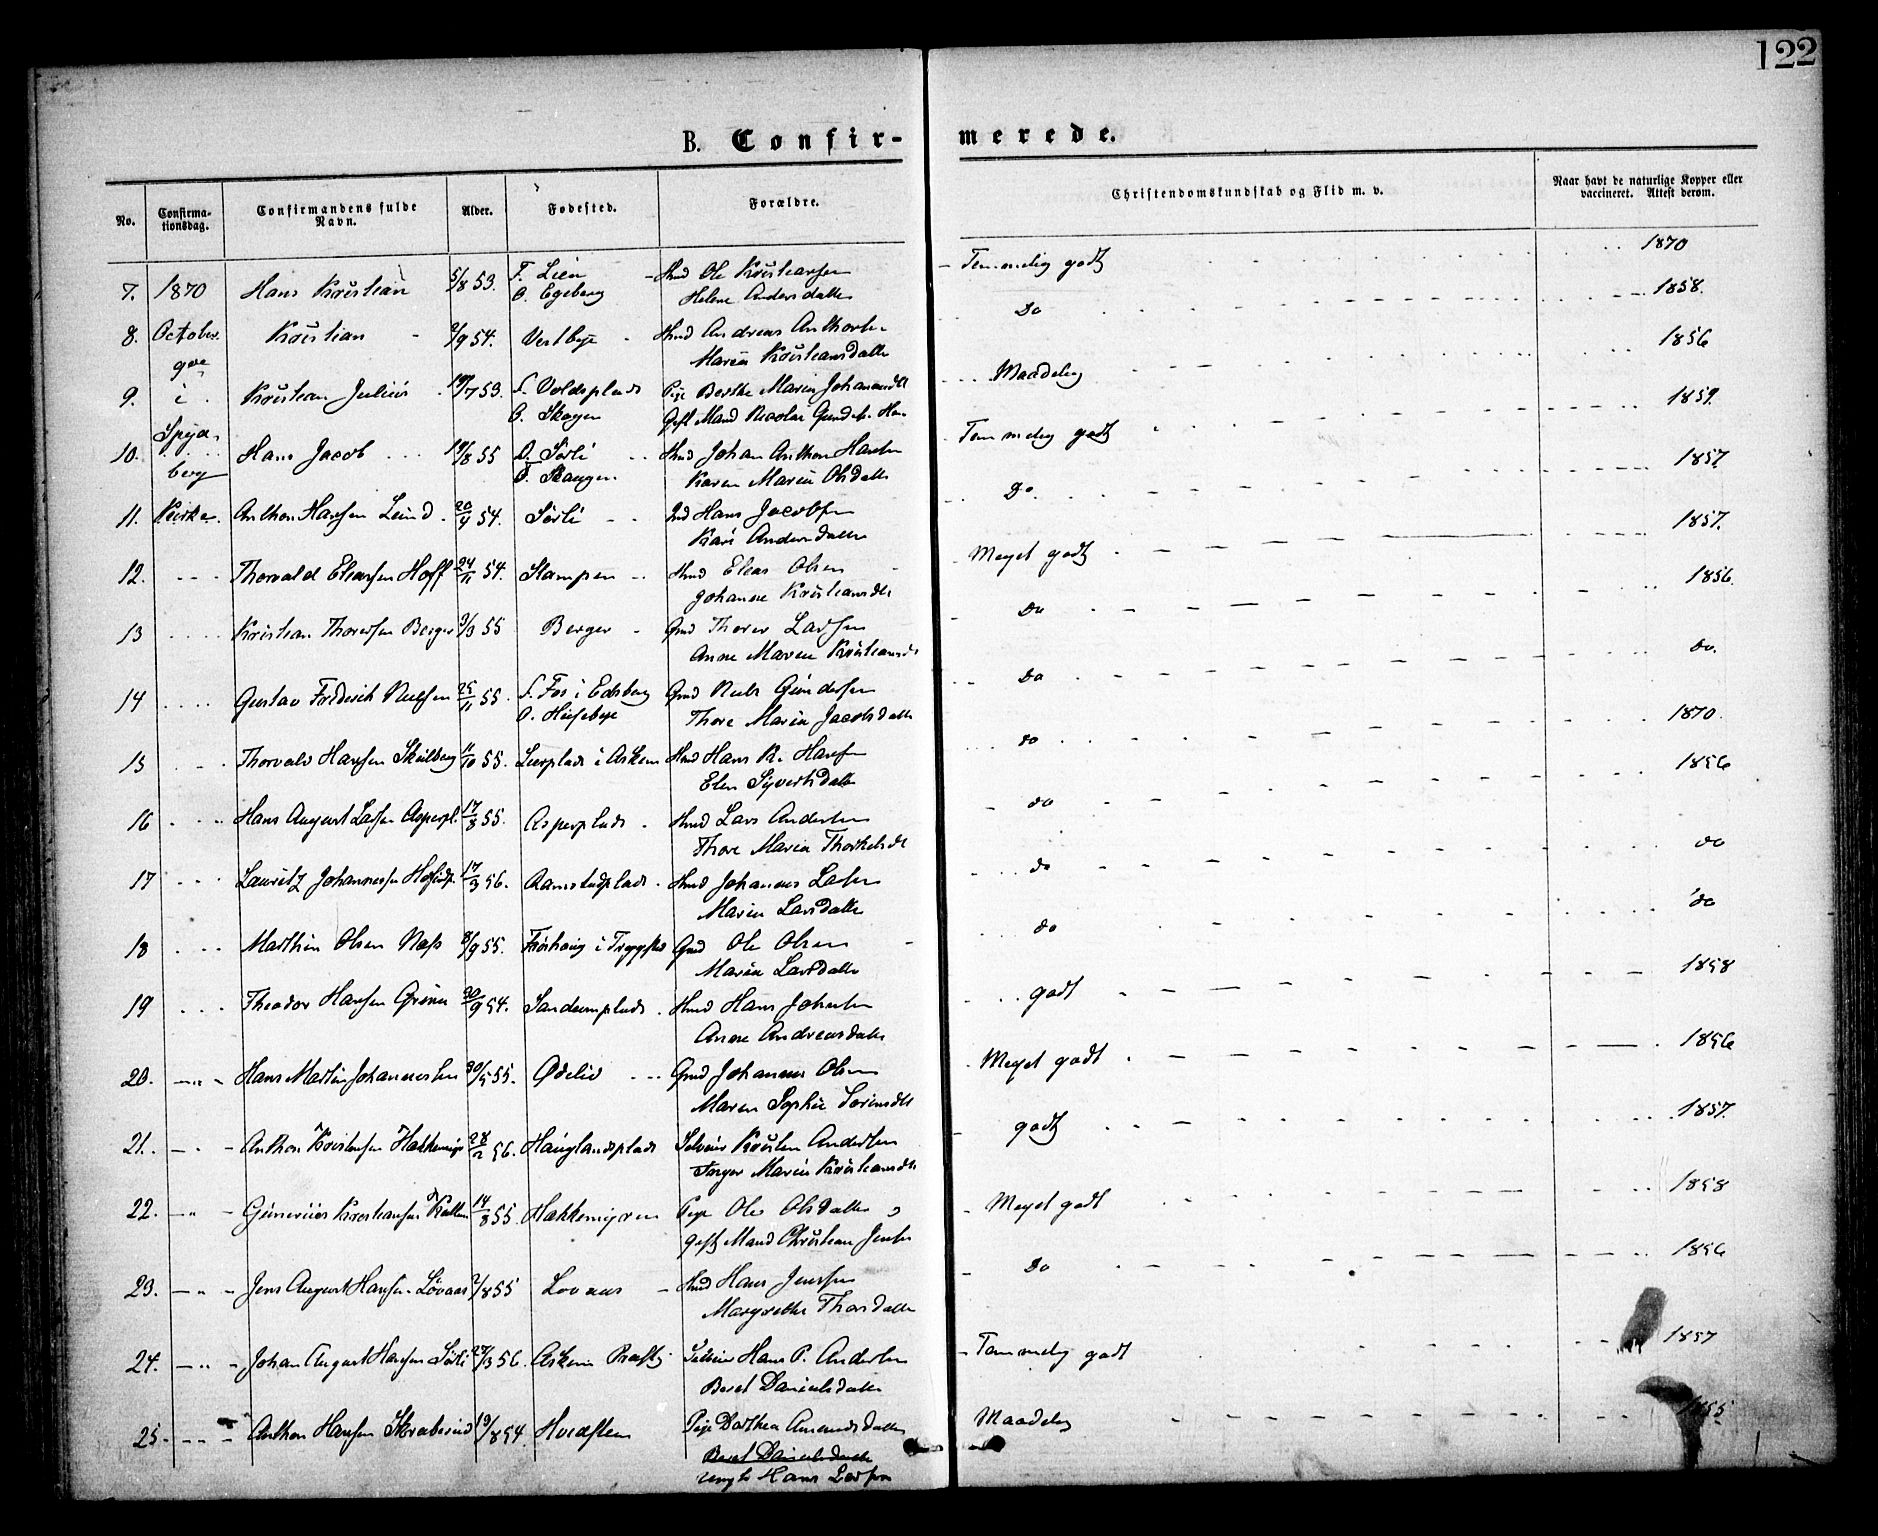 122
B. Confir- merede.
No. Confirma-tionsdag. Confirmandens fulde Navn. Alder. Fødested. Forældre. Christendomskundskab og Flid m. v. Naar havt de naturlige Kopper eller vaccineret. Attest derom.
7. 1870 Hans Kristian 5/8 53. F. Lien Hmd Ole Kristiansen Temmelig godt 1870
O. Egeberg Helene Andersdatter
8. October Kristian 2/9 54. Vestbye Hmd Andreas Anthons. Do 1858.
9de Maria Kristiansdatter
9. i Kristian Julius 19/7 53. F. Voldsplads Pige Berthe Maria Johannesdt Maadelig 1856
O. Skogen Gift Mand Nicolai Gunders. Han
Spyd-
10. Hans Jacob 19/8 55 O. Sørli Hmd Johan Anthon Hansen Temmelig godt 1859.
berg F. Skaugen. Karen Maria Olsdatter
11. Kirke. Anthon Hansen Lund 20/4 54. Sørli Ind Hans Jacobsen Do. 1857
Kari Andersdatter
12. Thorvald Eliassen Hoff 24/11 54. Stampen Hmd Elias Olsen Meget godt 1857.
Johanne Kristiansdt
13 Kristian Thoresen Berger 3/3 55 Berger Gmd Thorer Larsen Do 1856.
Anne Maren Kristiansdt
14 Gustav Frederik Nielsen 25/11 55. F. Fos i Eidsberg Gmd Niels Gundersen Do Do.
O. Husebye Thore Maria Jacobsdatter
15 Thorvald Hansen Skulberg 11/10 55. Lierplads i Askim Hmd Hans K. Hansen do 1870.
Elen Syvertsdatter
16 Hans August Larsen Asperpl. 17/8 55. Asperplads Hmd Lars Andersen do 1856
Thore Maria Thorkelsdt
17 Lauritz Johannessen 17/3 56. Aamotsplads Hmd Johannes Larsen do do
Maria Larsdatter
18 Martin Olsen Næs 8/9 55. Frøshaug i Trygstad Gmd Ole Olsen do do
Maria Larsdatter
19 Theodor Hansen Grinne 30/9 54. Sandemplads Hmd Hans Johnsen godt 1858
Anne Andreasdatter
20. Hans Martin Johannessen 30/5 55. Ødelid Gmd Johannes Olsen Meget godt 1856
Maren Sophie Sørensdt
21. Anthon Kristensen Hakkemyr 28/2 56. Hauglandsplads Selveier Kristen Andersen godt 1857.
Inger Maria Kristiansdt
22. Gunerius Kristiansen 14/8 55. Hakkemyren Pige Olea Olsdatter Meget godt 1858
gift Mand Christian Jensen
23. Jens August Hansen Løvaas 7/8 55 Lovaas Hmd Hans Jensen Do 1856
Margrethe Thorsdatter
24. Johan August Hansen Sørli 27/3 56. Askim Præstgj Selveier Hans P. Andersen Temmelig godt 1857
Beret Danielsdatter
25. Anthon Hansen Skraberud 19/8 54 Hvidsten Pige Dorthea Amundsdatter Maadelig 1855
Beret Danielsdatter
ungk Hans Larsen